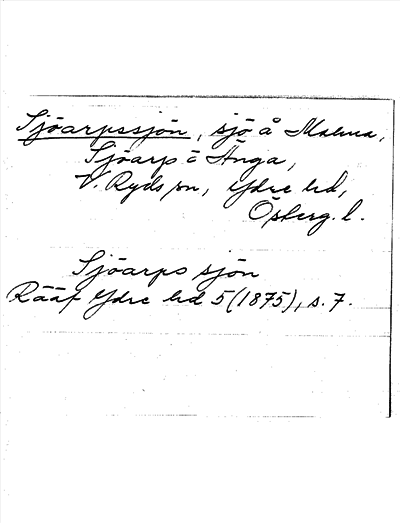 Sjöarpssjön, sjö å Malma,
Sjöarp å Änga,
V. Ryds sn, Ydre hd,
Östergl.
Sjöarps sjön
Rääf Ydre hd 5(1875), s. 7.